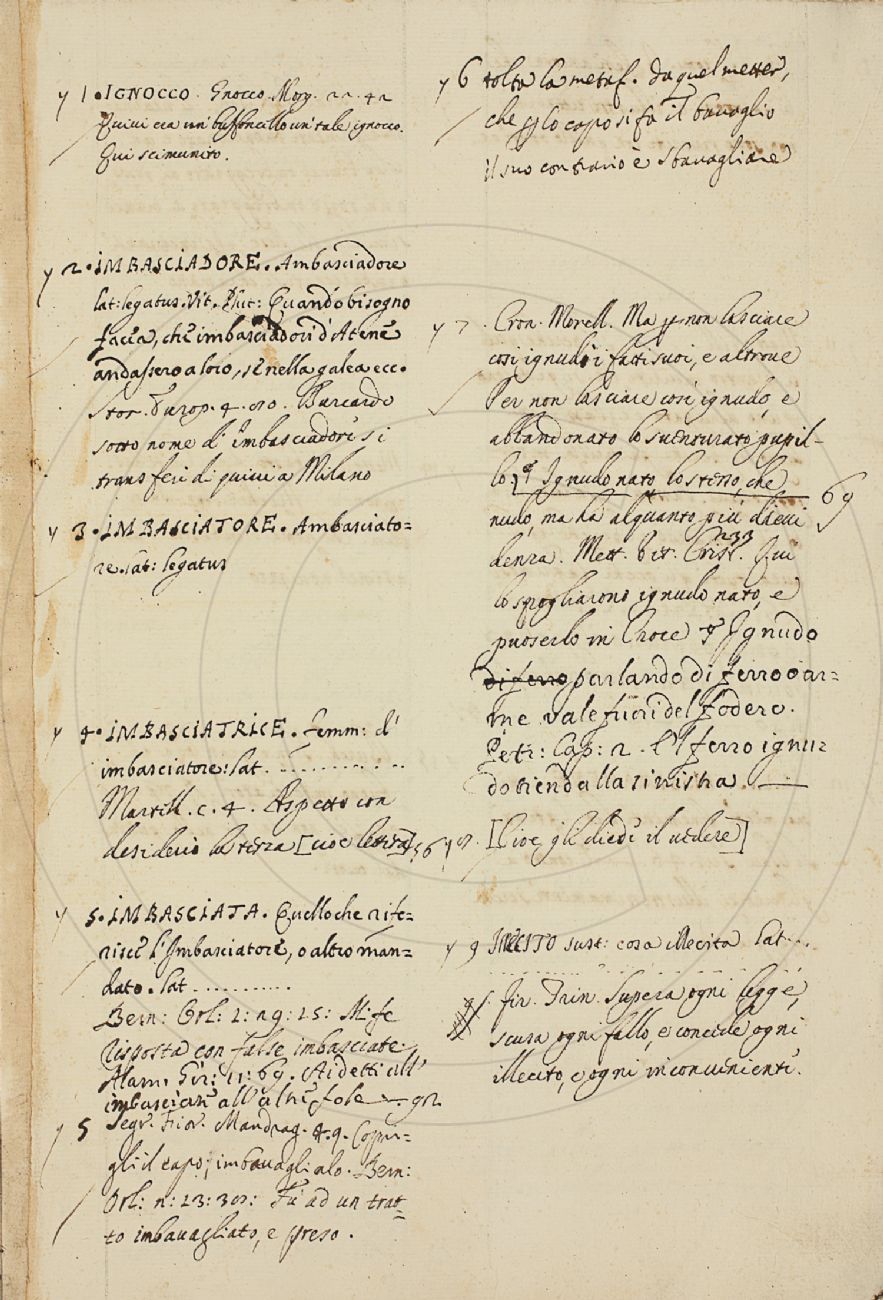 y 1. IGNOCCO. Gnocco. Morg. 22. 42
Quivi era un buffoncello un tale ignocco.
Qui scimunito.
y 2. IMBASCIADORE. Ambasciadore
lat: legatus. Vit. Plut: Quando bisogno
facea, che imbasciadori d'Atene
andassero a loro, se nella galea ecc.
Stor. Europ. 4. 80. Burcardo
sotto nome di Imbasciadore si
transferì di quivi a Milano
y 3. IMBASCIATORE. Ambasciato=
re. lat: legatus
y 4. IMBASCIATRICE. femm: d'
imbasciatore: lat. ..........
Martell. c. 4. Aspetto con
desiderio la terza [cioè lettera]
y 5. IMBASCIATA. Quello che rife=
risce l'Imbasciatore, o altro man=
dato. lat ..........
Bern: Orl: 1: 29: 15: Mi fe
risposta con false imbasciate.
Alam. Gir: 11: 69. Ai detti all'
imbasciate all'altrui fole
y 5 Segr. Fior. Mandrag. 4. 9. Copri=
gli il capo, imbavaglialo. Bern:
Orl: 2: 13: 30: Fu ad un trat=
to imbavagliato, e preso.
y 6 tolta la metaf. da quel metter,
che per lo capo si fa il bavaglio
il suo contrario è sbavagliare
y 7. Cron. Morell. Ma per non lasciare
così ignudi i fatti suoi, e altrove
Per non lasciare così ignudo, e
abbandonato lo sventurato pupil-
lo Ignudo nato, lo stesso, che
nudo, ma ha alquanto più d'evi
denza. Mett. Vit. Crist. 233 Qui
lo spogliarono ignudo nato, e
puoserlo in Croce Ignudo
di ferro parlando di ferro o ar=
me vale fuori del fodero.
Petr: Cap: 2. E'l ferro ignu=
do tiene dalla sinistra
y 8. [Cioè gli diede il vedere]
y 9 ILLECITO sust: cosa illecita lat...
Fir. Trin. Supera ogni legge,
scusa ogni fallo, e concede ogni
illecito, e ogni inconveniente.